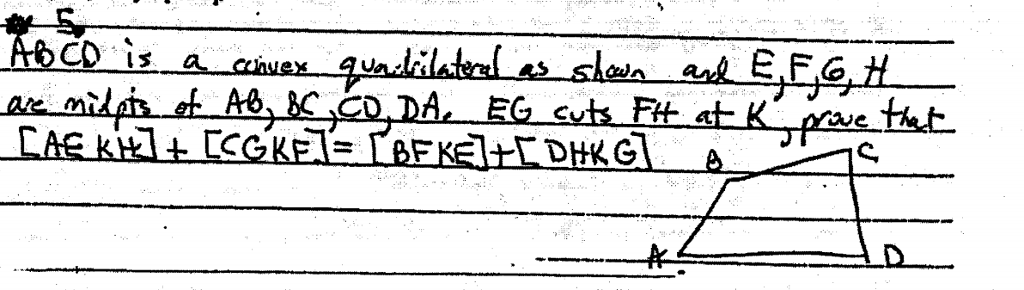 5.
ABCD is a convex quadrilateral as shown and E,F,G,H
are midpts of AB, BC, CD, DA. EG cuts FH at K, prove that
[AEKH] + [CGKF] = [BFKE]+[DHKG]
B C
A D